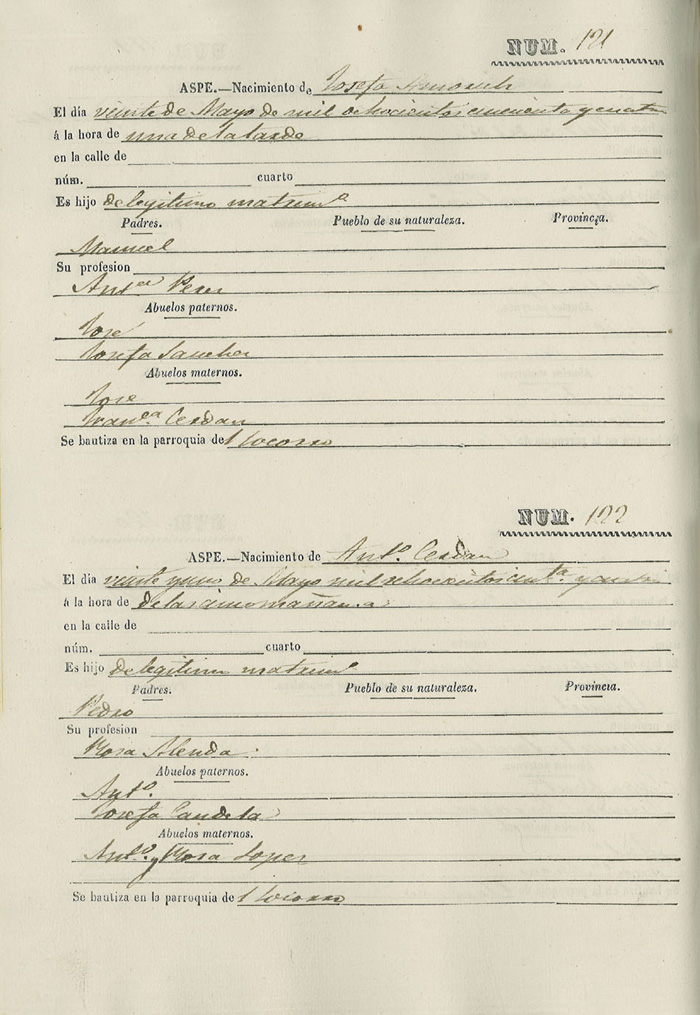 NUM. 121
ASPE.—Nacimiento de Josefa Amorich
El día veinte de Mayo de mil ochocientos cincuenta y cuatro
á la hora de una de la tarde
en la calle de
núm. cuarto
Es hijo de legitimo matrimº
Padres. Pueblo de su naturaleza. Provincia.
Manuel
Su profesion
Antᵉᵃ Perez
Abuelos paternos.
José
Josefa Sanchez
Abuelos maternos.
José
Francᵃ Cerdan
Se bautiza en la parroquia de l Socorro
NUM. 122
ASPE.—Nacimiento de Antº. Cerdan
El día veinte y uno de Mayo mil ochocientos cincᵗᵃ y cuatro
á la hora de de las cinco mañana
en la calle de
núm. cuarto
Es hijo de legitimo matrimº
Padres. Pueblo de su naturaleza. Provincia.
Pedro
Su profesion
Rosa Alenda.
Abuelos paternos.
Antº.
Josefa Candela
Abuelos maternos.
Antº. y Rosa Lopez
Se bautiza en la parroquia de l Socorro